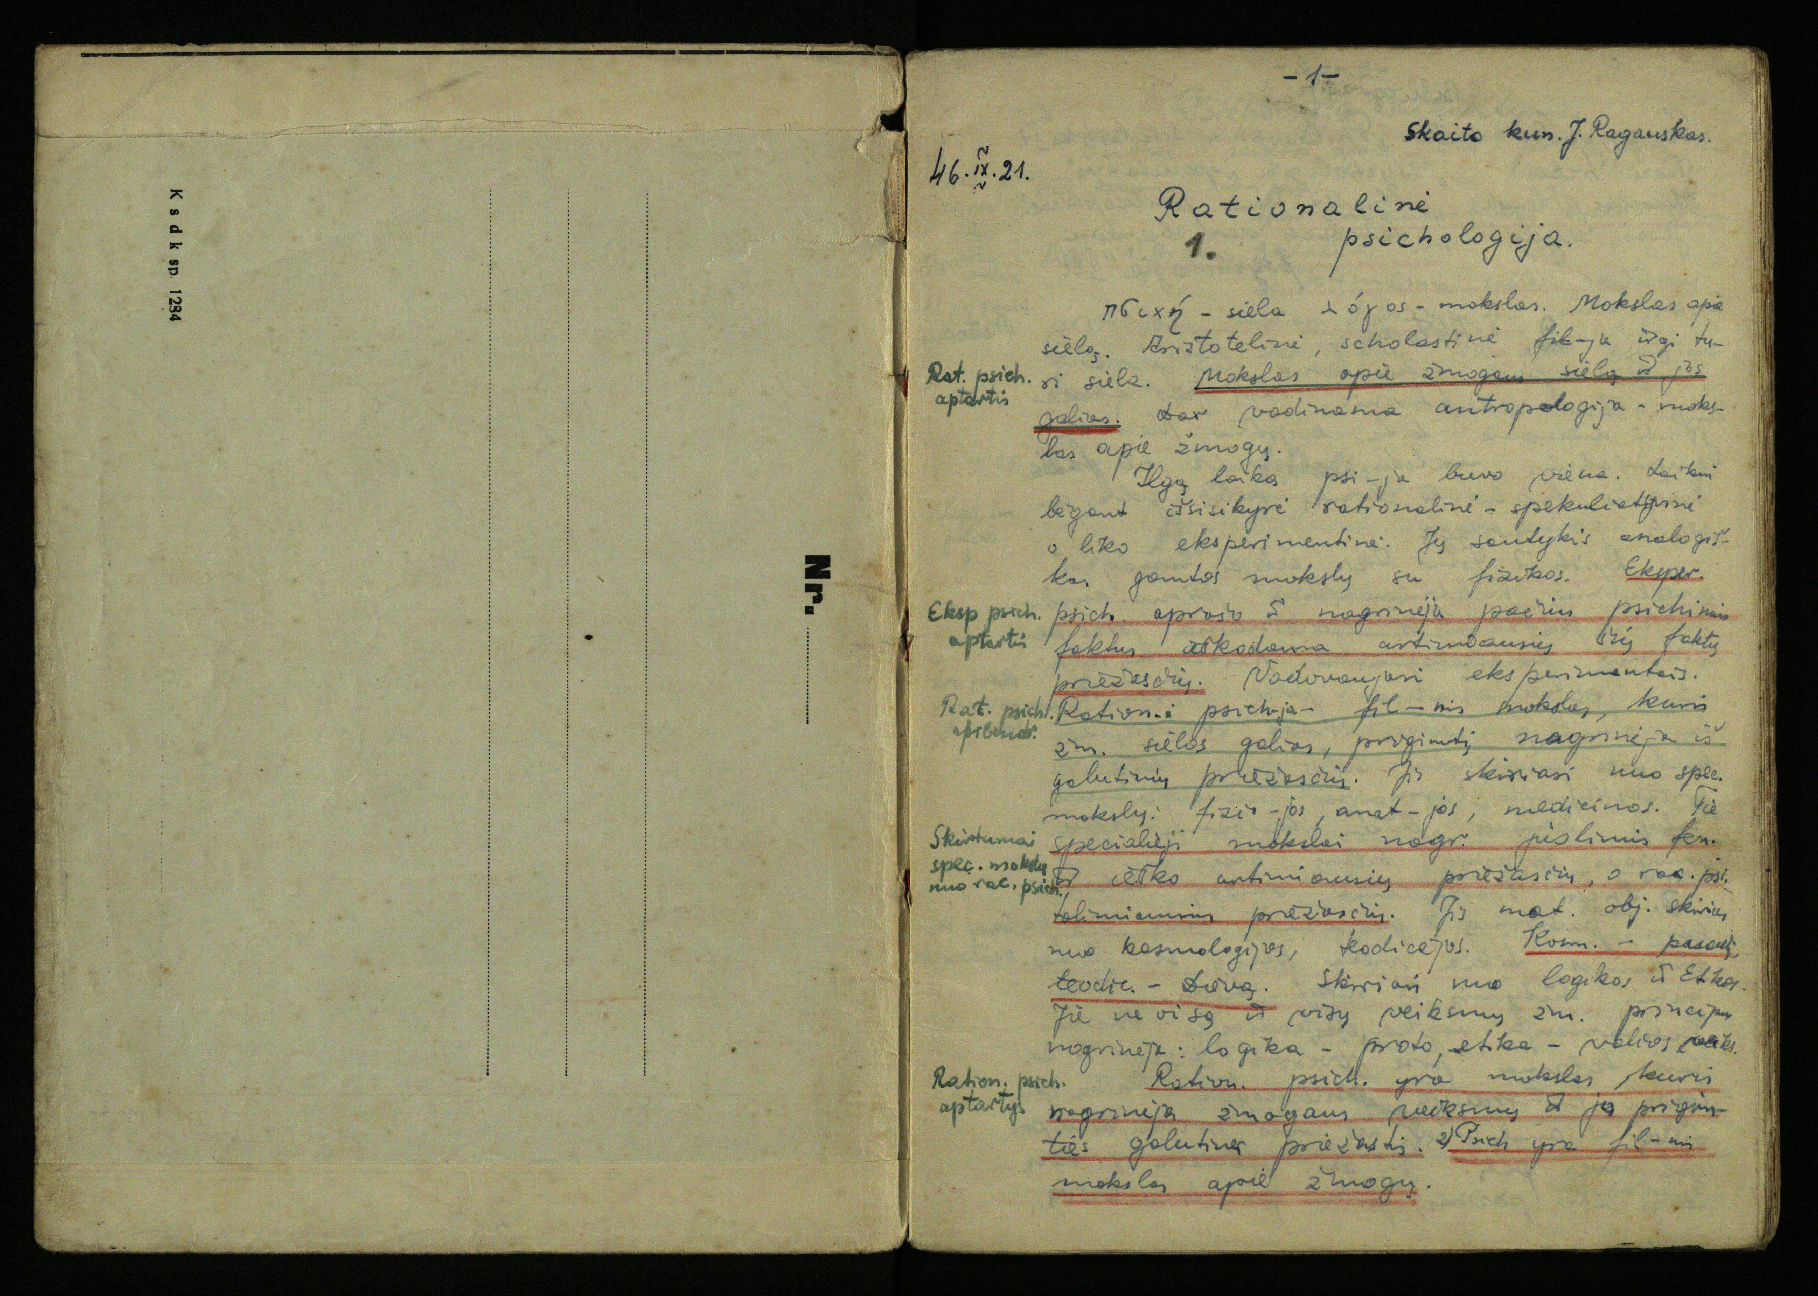 K s d k sp. 1284
Nr.
- 1 -
Skaito kun. J. Ragauskas.
46.IX.21.
Rationalinė
1. psichologija.
πσιχή - siela λόγος - mokslas. Mokslas apie
sielą. Aristotelinė, scholastinė fil-ja irgi tu-
Rat. psich.
aptartis
ri siela. Mokslas apie žmogaus sielą ir jos
galias. Dar vadinama antropologija - moks-
las apie žmogų.
Ilgą laiką psi-ja buvo viena. Laikui
bėgant išsiskyrė rationalinė - spekuliatyvinė
o liko eksperimentinė. Jų santykis analogiš-
kas gamtos mokslų su fizikos. Eksper.
Eksp psich.
aptartis
psich. aprašo ir nagrinėja pačius psichinius
faktus ieškodama artimiausių šių faktų
priežasčių. Vadovaujasi eksperimentais.
Rat. psich.
apibendr.
Ration-ė psich-ja - fil-nis mokslas, kuris
žm. sielos galias, prigimtį nagrinėja iš
galutinių priežasčių. Jis skiriasi nuo spec.
mokslų: fizio-jos, anat-jos, medicinos. Tie
Skirtumai
spec. mokslų
nuo rac. psich.
specialieji mokslai nagr. jūslinius fen.
ir ieško artimiausių priežasčių, o rac. psi.
tolimiausių priežasčių. Jis mat. obj. skirias
nuo kosmologijos, teodicėjos. Kosm. - pasaulį,
teodic. - Dievą. Skiriasi nuo logikos ir Etikos.
Jie ne visą ir visų veiksmų žm. principus
nagrinėja: logika - proto, etika - valios veiks.
Ration. psich.
aptartys
Ration. psich. yra mokslas, kuris
nagrinėja žmogaus veiksmų ir jo prigim-
ties galutinę priežastį. 2) Psich yra fil-nis
mokslas apie žmogų.